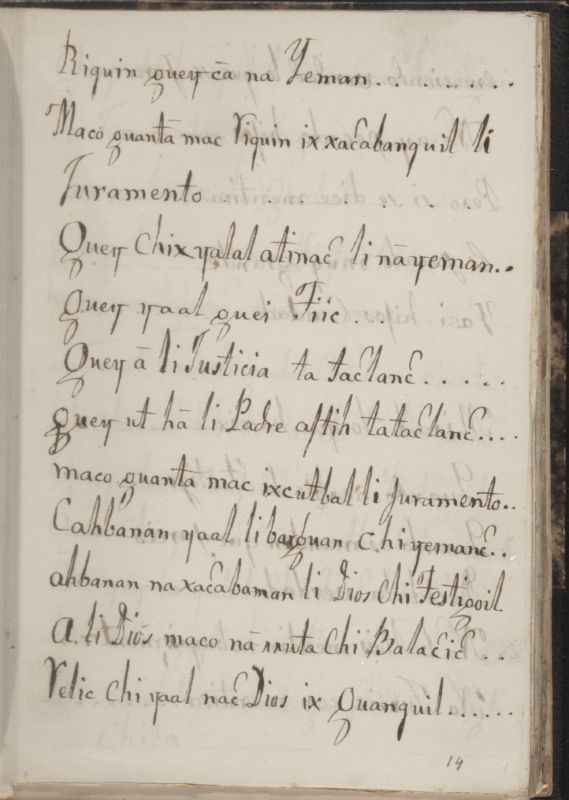 Riquin quey cā na Yeman........
Maco quantā mac Viquin ix xac̄abanquil li
Juramento . . . . . .
Quey Chix yalal atinac̄ li nāyeman..
Quey yaal quei Tiic̄...
Quey ā li Justicia ta tac̄lanc̄.....
quey ut hā li Padre aſtih tatac̄lanc̄....
maco quanta mac ixcutbal li juramento..
Cahbanan yaal li barquan chiyemanc̄..
ahbanan naxac̄abaman li Dios Chi Testigoil
A li Diós maco nā rruta Chi Balac̄ic̄ ..
Velic Chi yaal nac̄ Dios ix Quanquil......
14